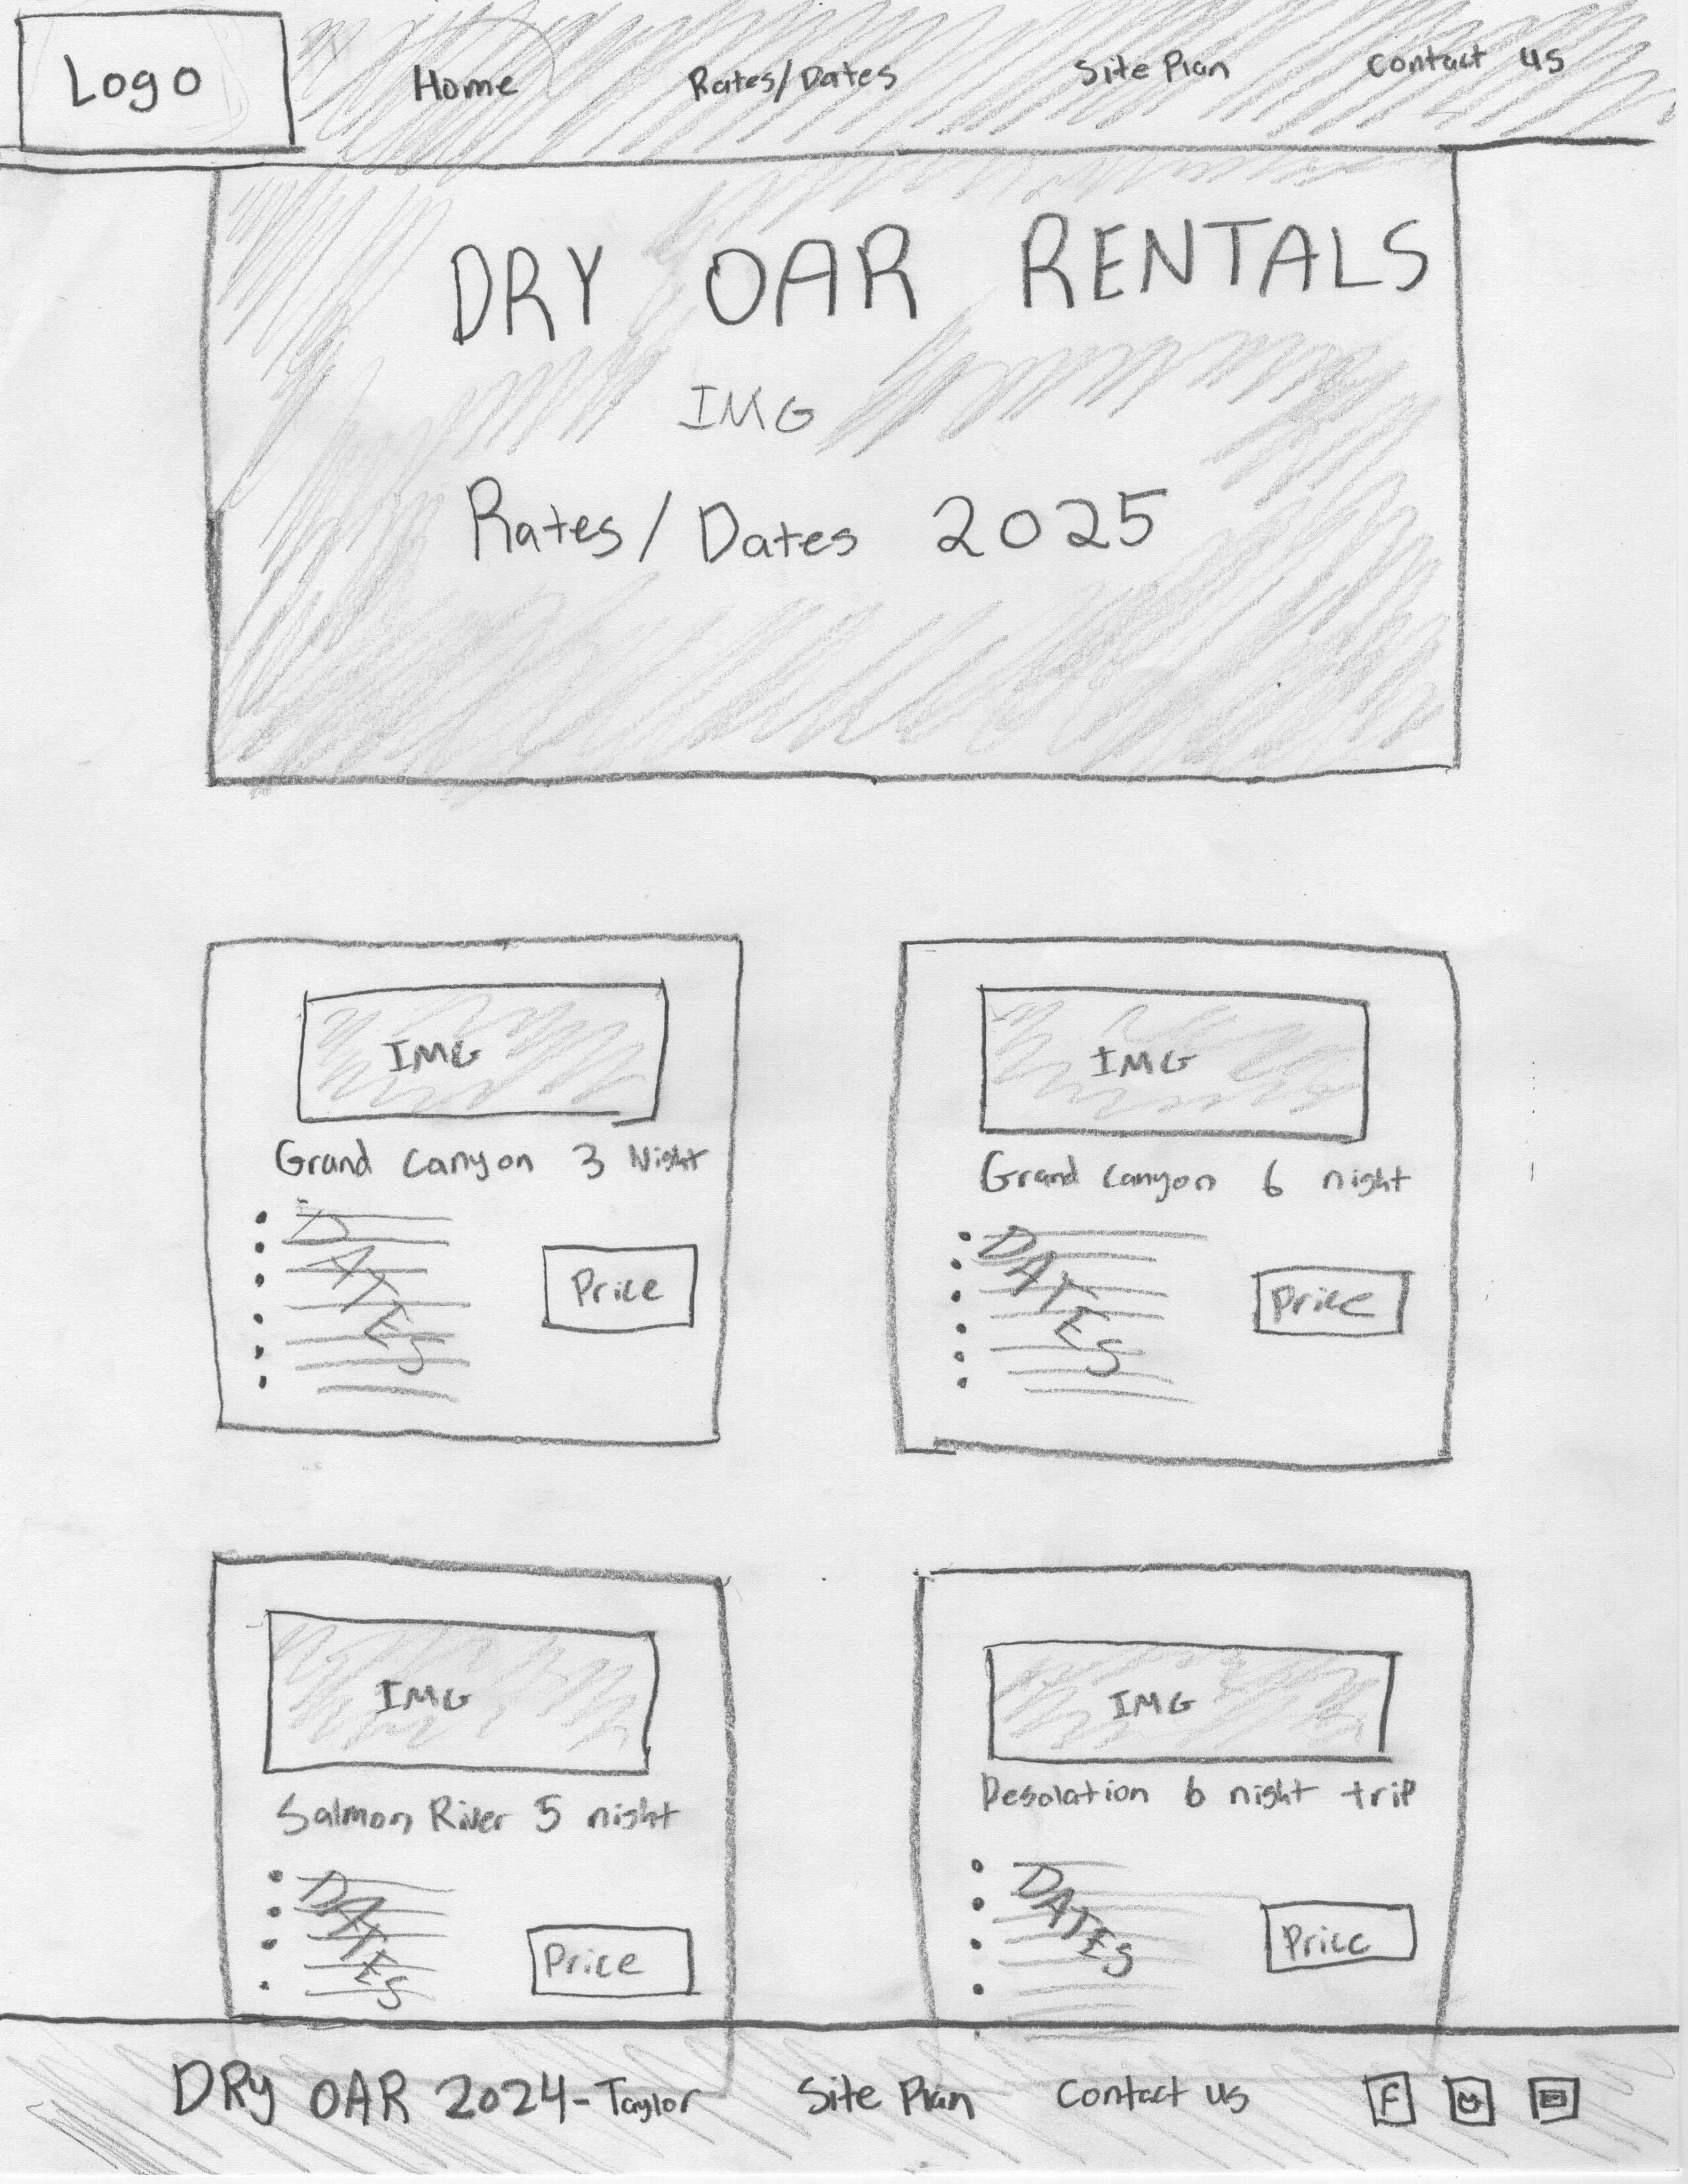 Logo Home Rates/Dates Site Plan Contact us
DRY OAR RENTALS
IMG
Rates/Dates 2025
IMG
Grand Canyon 3 Night
DATES
Price
IMG
Grand Canyon 6 night
DATES
Price
IMG
Salmon River 5 night
DATES
Price
IMG
Desolation 6 night trip
DATES
Price
DRy OAR 2024-Taylor Site Plan Contact us F